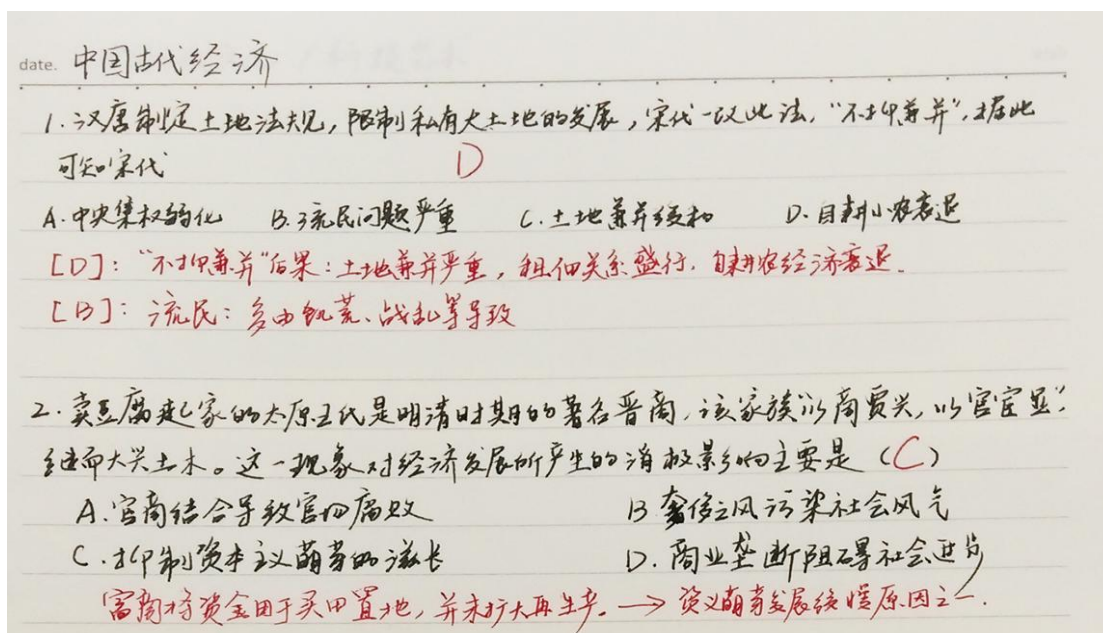 date. 中国古代经济
1.汉唐制定土地法规，限制私有大土地的发展，宋代一改此法，“不抑兼并”，据此
可知宋代 D
A.中央集权弱化 B.流民问题严重 C.土地兼并缓和 D.自耕小农衰退
[D]：“不抑兼并”后果：土地兼并严重，租佃关系盛行，自耕农经济衰退.
[B]：流民：多由饥荒、战乱等导致
2.卖豆腐起家的太原王氏是明清时期的著名晋商，该家族“以商贾兴，以官宦显”，
继而大兴土木。这一现象对经济发展所产生的消极影响主要是（C）
A.官商结合导致官场腐败 B 奢侈之风污染社会风气
C.抑制资本主义萌芽的滋长 D.商业垄断阻碍社会进步
富商将资金用于买田置地，并未扩大再生产.→资义萌芽发展缓慢原因之一.